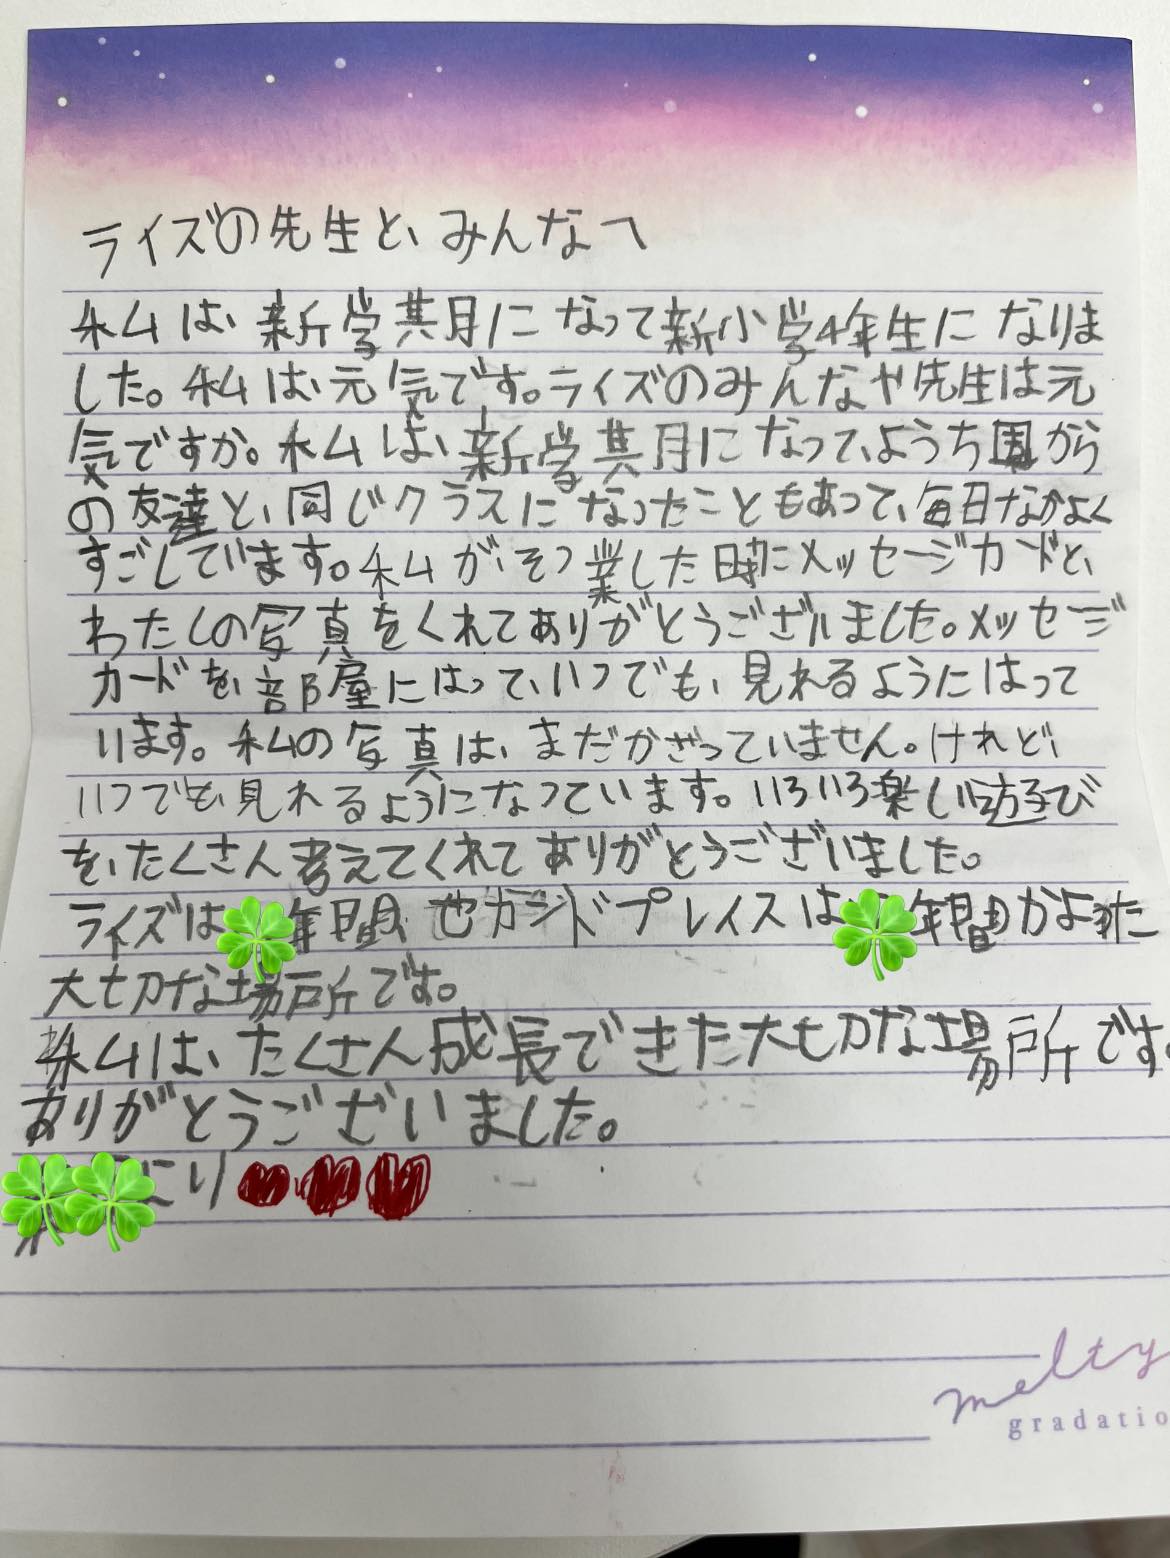 ライズの先生と、みんなへ
私は、新学期になって新小学4年生になりま
した。私は、元気です。ライズのみんなや先生は元
気ですか。私は、新学期になって、ようち園から
の友達と、同じクラスになったこともあって、毎日なかよく
すごしています。私が、そつ業した時にメッセージカードと、
わたくしの写真をくれてありがとうございました。メッセージ
カードを、部屋にはって、いつでも、見れるようにはって
います。私の写真は、まだかざっていません。けれど、
いつでも、見れるようになっています。いろいろ楽しい遊び
を、たくさん考えてくれてありがとうございました。
ライズは年間、也ガシドプレイスは年間かよった
大切な場所です。
私は、たくさん成長できた大切な場所です。
ありがとうございました。
にり
melty
gradatio